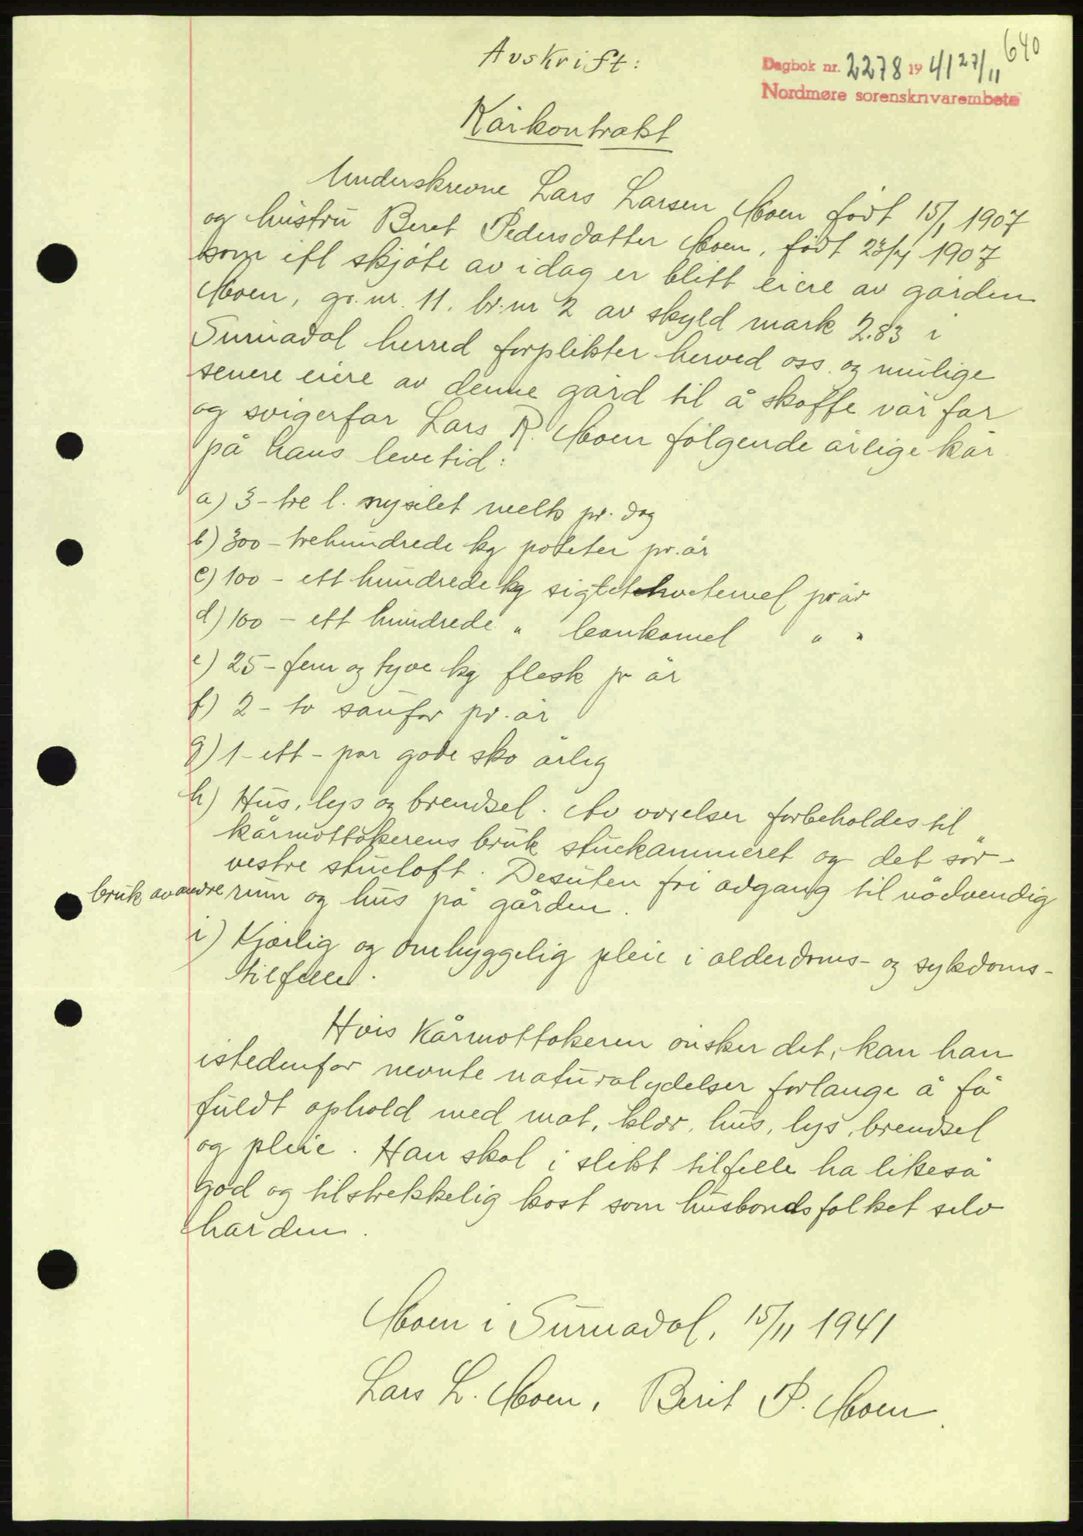 Avskrift:
640
Dagbok nr. 2278 1941 27/11
Nordmøre sorenskrivarembete
Kårkontrakt
Underskrevne Lars Larsen Moen født 15/1 1907
og hustru Beret Pedersdatter Moen, født 23/4 1907
som ifl skjøte av idag er blitt eiere av gården
Moen, gr.nr. 11. br.nr 2 av skyld mark 2.83 i
Surnadal herred forplikter herved oss og mulige
senere eiere av denne gård til å skaffe vår far
og svigerfar Lars R. Moen følgende årlige kår
på hans levetid:
a) 3 - tre l. nysilet melk pr. dag
b) 300 - trehundrede kg poteter pr. år
c) 100 - ett hundrede kg sigtet hvetemel pr år
d) 100 - ett hundrede " bankamel " "
e) 25 - fem og tyve kg flesk pr år
f) 2 - to saufor pr. år
g) 1 - ett - par gode sko årlig
h) Hus, lys og brendsel. Av værelser forbeholdes til
kårmottakerens bruk stuekammeret og det sør-
vestre stueloft. Desuten fri adgang til nødvendig
bruk av andre rum og hus på gården.
i) Kjærlig og omhyggelig pleie i alderdoms- og sykdoms-
tilfelle.
Hvis Kårmottakeren ønsker det, kan han
istedenfor nevnte naturalydelser forlange å få
fuldt ophold med mat, klær, hus, lys, brendsel
og pleie. Han skal i slikt tilfelle ha likeså
god og tilstrekkelig kost som husbondsfolket selv
har den.
Moen i Surnadal, 15/11 1941
Lars L. Moen, Berit P. Moen.